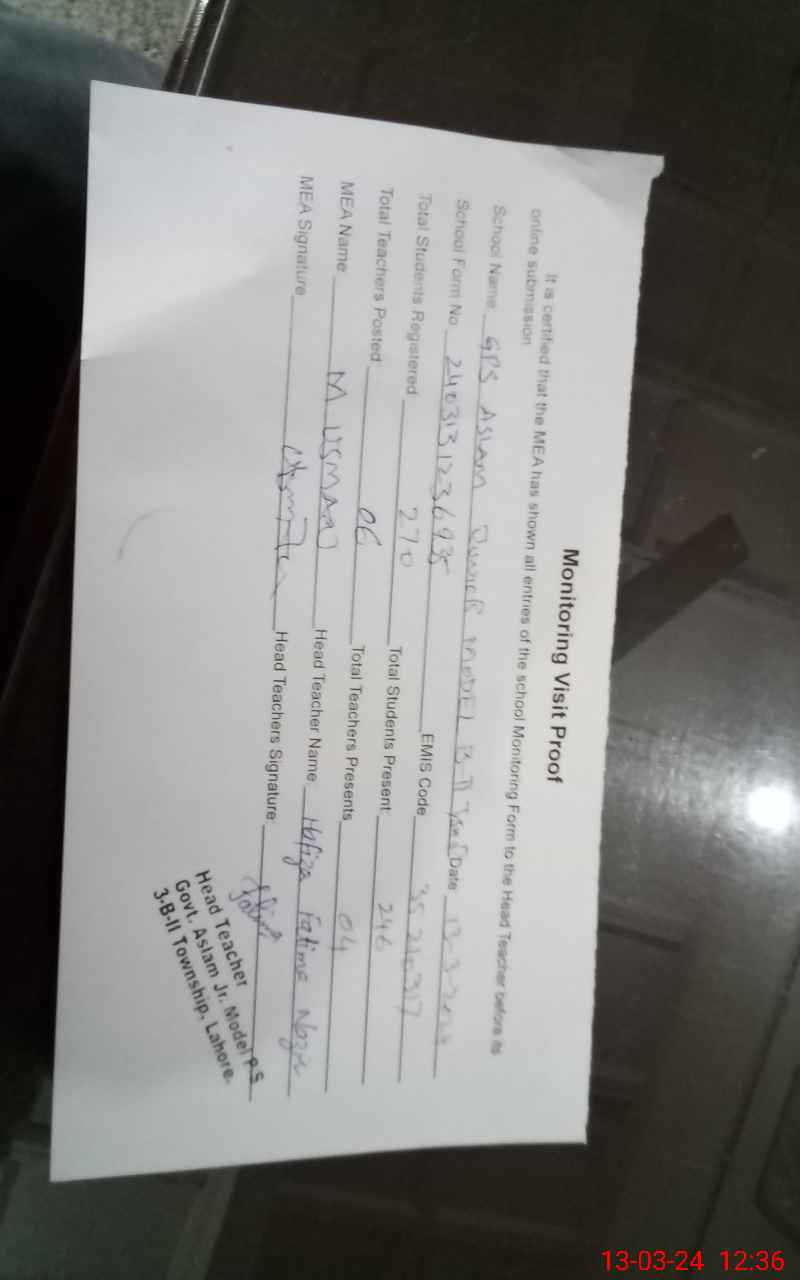 Monitoring Visit Proof
It is certified that the MEA has shown all entries of the school Monitoring Form to the Head Teacher before its
online submission
School Name GPS ASLAM JUNIOR MODEL B-II Date 13-3-2024
School Form No 240313123693 EMIS Code 35210317
Total Students Registered 270 Total Students Present: 246
Total Teachers Posted: 06 Total Teachers Presents 04
MEA Name: M USMAN Head Teacher Name: Hafiza Fatima
MEA Signature Head Teachers Signature:
Head Teacher
Govt. Aslam Jr. Model P.S
3-B-II Township, Lahore.
13-03-24 12:36